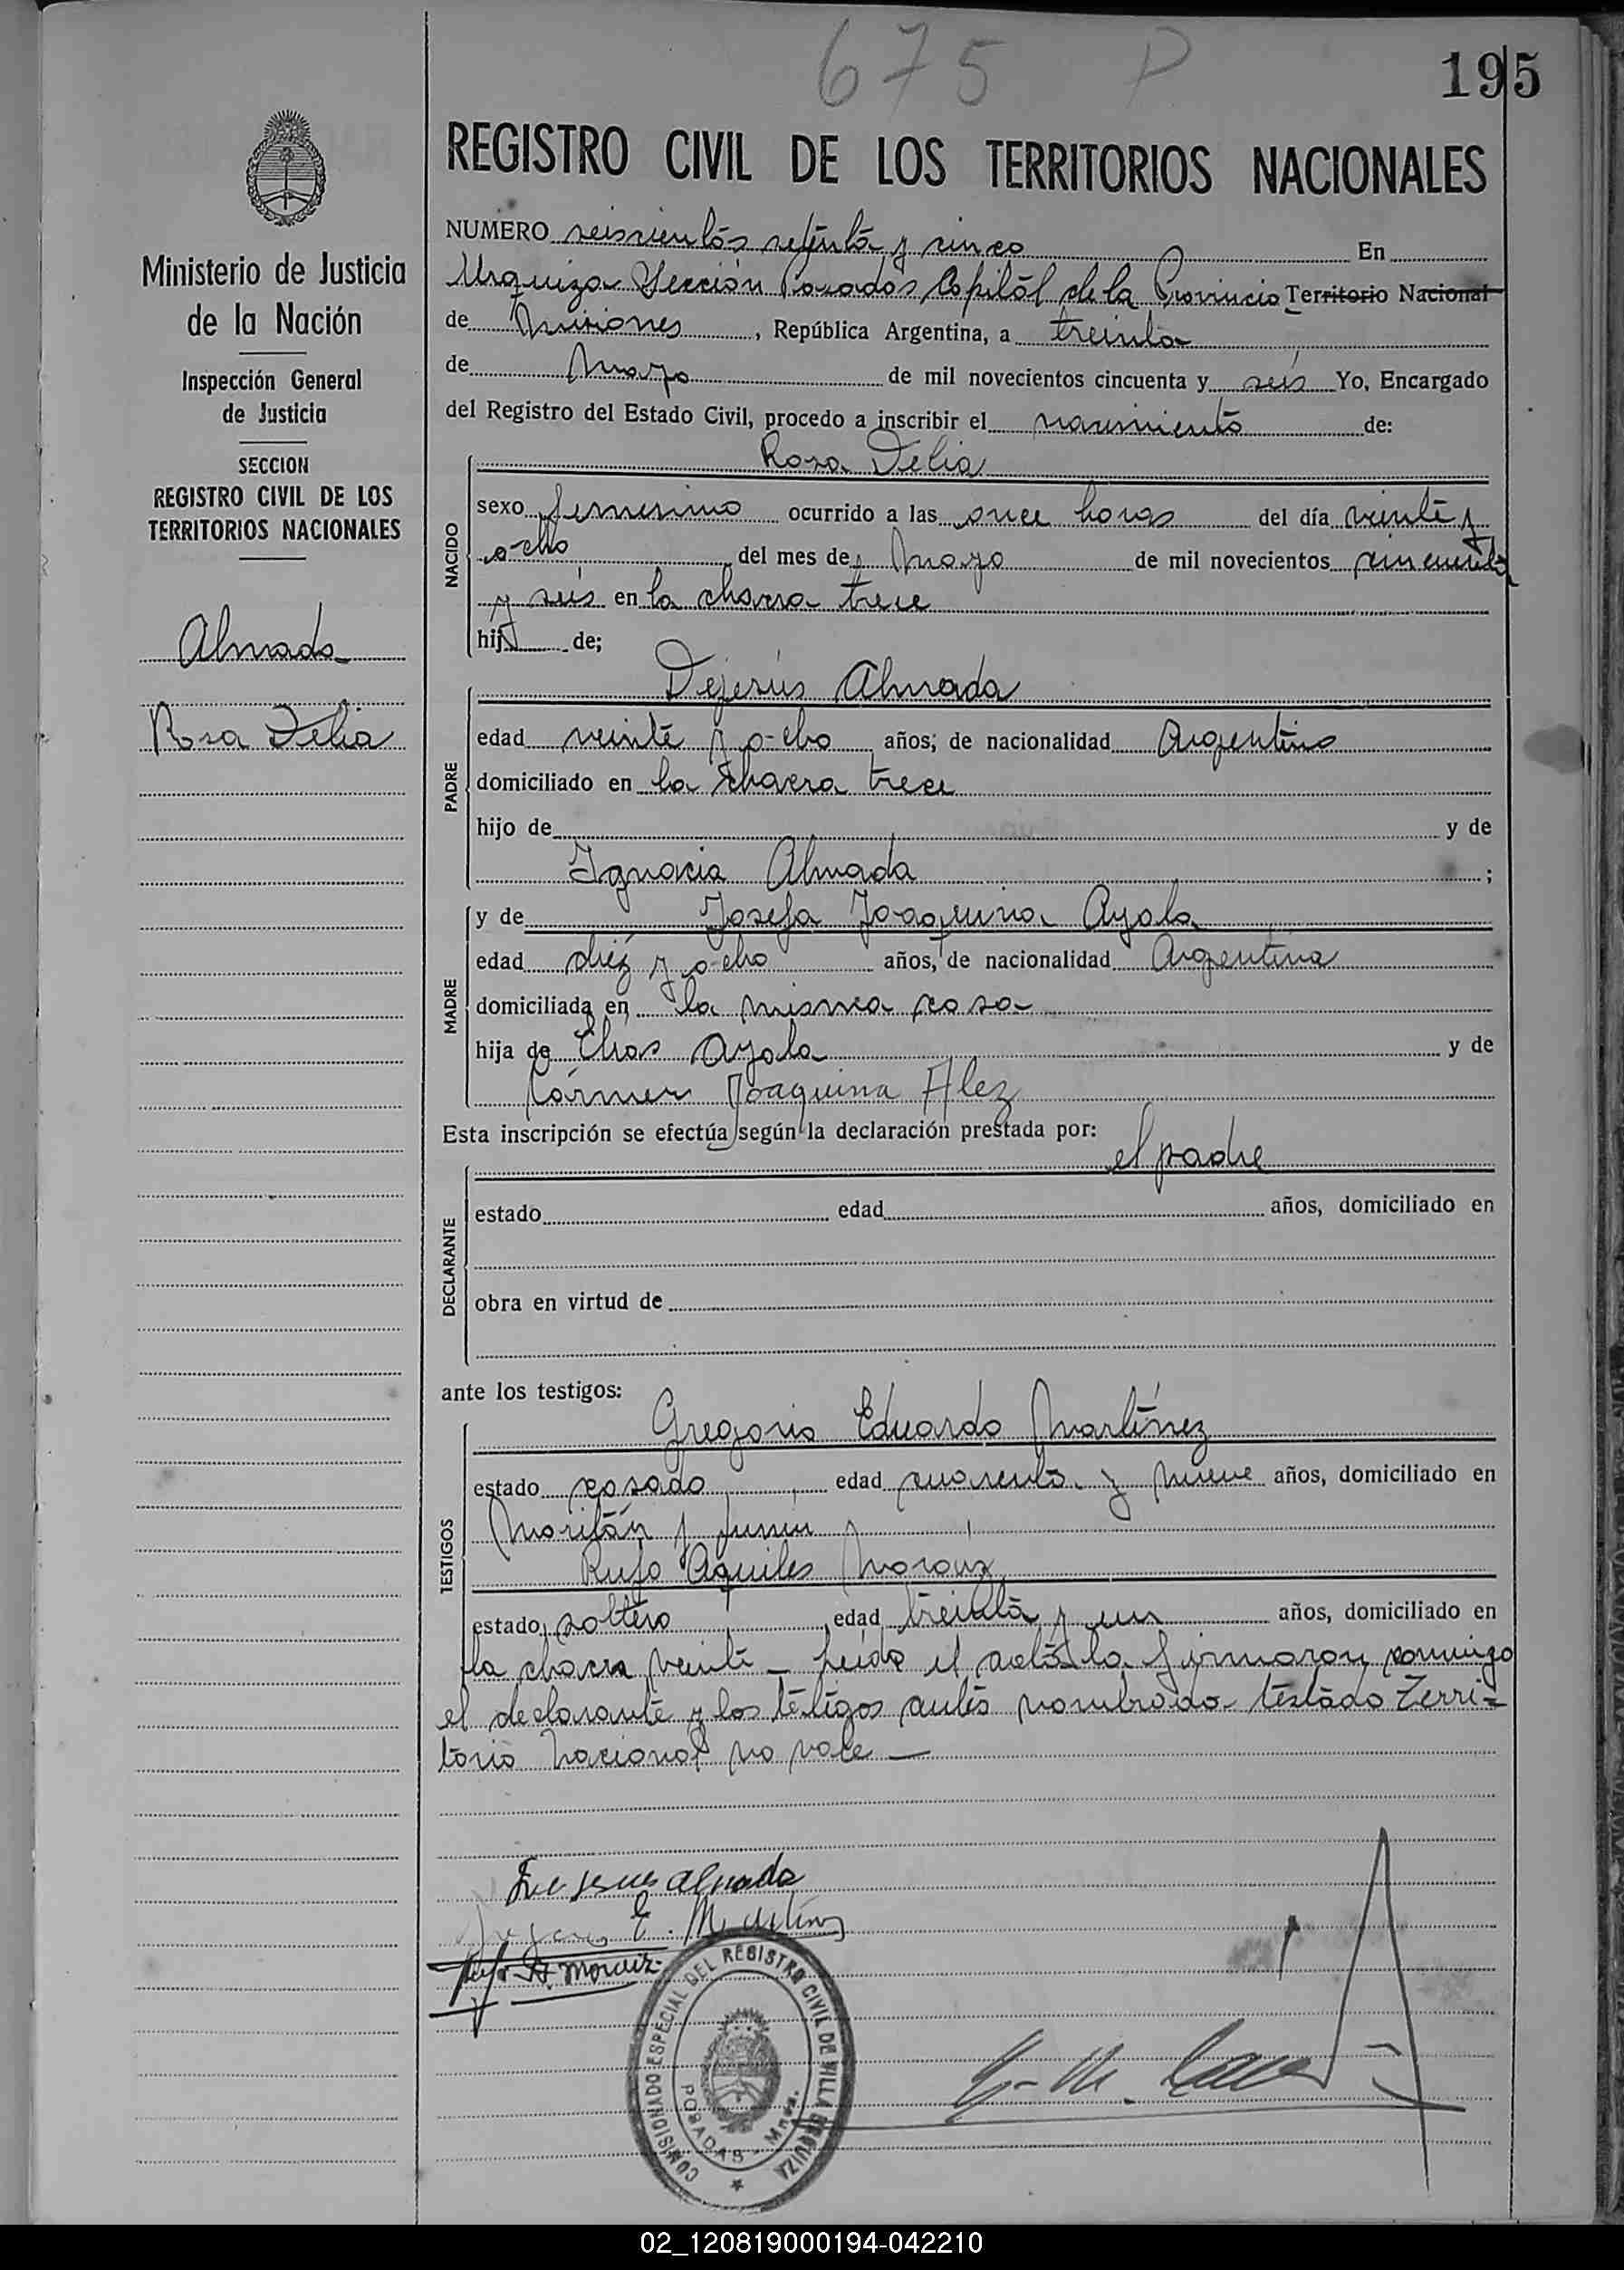 675 P
195
REGISTRO CIVIL DE LOS TERRITORIOS NACIONALES
Ministerio de Justicia
de la Nación
Inspección General
de Justicia
SECCION
REGISTRO CIVIL DE LOS
TERRITORIOS NACIONALES
Almada
Rosa Delia
NUMERO seiscientos setenta y cinco En
Urquiza Sección Posadas Capital de la Provincia Territorio Nacional
de Misiones, República Argentina, a treinta
de Mayo de mil novecientos cincuenta y seis Yo, Encargado
del Registro del Estado Civil, procedo a inscribir el nacimiento de:
Rosa Delia
NACIDO
sexo femenino ocurrido a las once horas del día veinte y
ocho del mes de Mayo de mil novecientos cincuenta
y seis en la chacra trece
hij de;
PADRE
Dejesús Almada
edad veinte y ocho años; de nacionalidad Argentino
domiciliado en la chacra trece
hijo de y de
Ignacia Almada ;
MADRE
y de Josefa Joaquina Ayala
edad diez y ocho años, de nacionalidad Argentina
domiciliada en la misma casa
hija de Elias Ayala y de
Cármen Joaquina Alez
Esta inscripción se efectúa según la declaración prestada por:
el padre
DECLARANTE
estado edad años, domiciliado en
obra en virtud de
ante los testigos:
TESTIGOS
Gregorio Eduardo Martínez
estado casado edad cuarenta y nueve años, domiciliado en
y Junin
Rufo Aquiles
estado soltero edad treinta y un años, domiciliado en
la chacra veinte - Leida el acta la firmaron conmigo
el declarante y los testigos antes nombrado - testado Terri=
torio Nacional no vale —
De Jesus Almada
E. Martinez
Rufo A.
COMISIONADO ESPECIAL DEL REGISTRO CIVIL DE VILLA URQUIZA
POSADAS - Mnes.
02_120819000194-042210